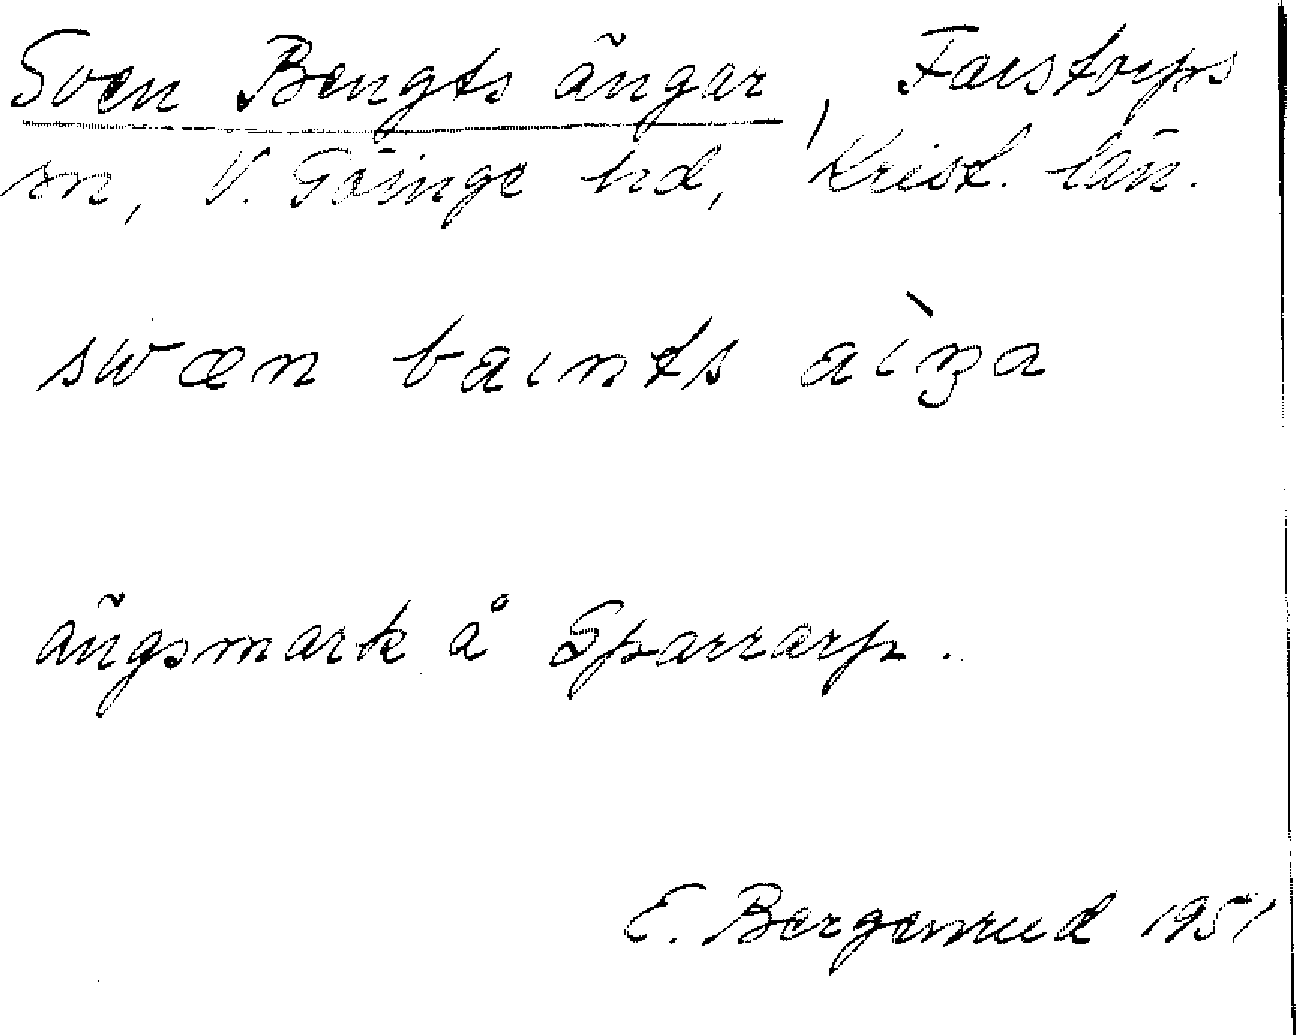 Sven Bengts ängar, Farstorps
sn, V. Göinge hd, Krist. län.
swæn baints àiŋa
ängsmark å Sparrarp.
E. Bergenrud 1951